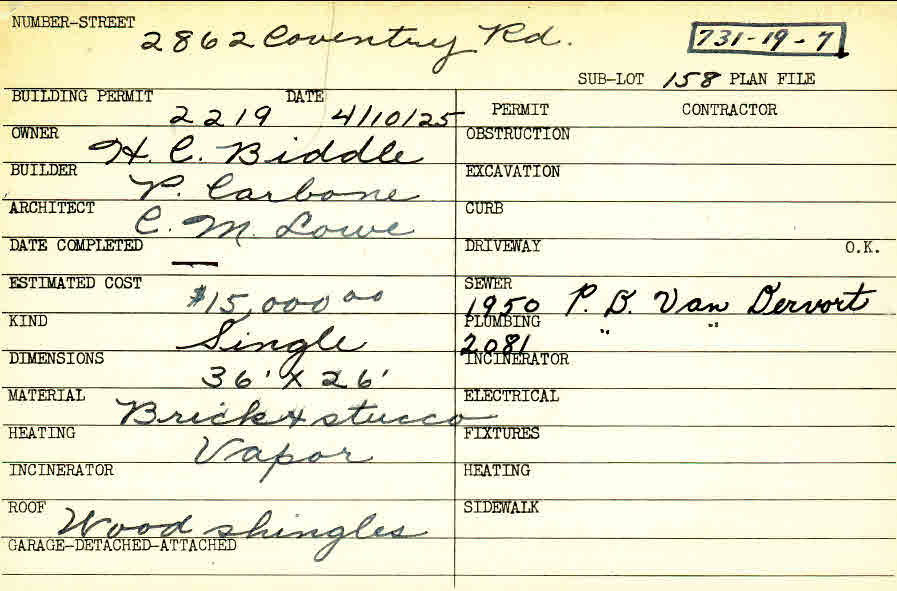 NUMBER-STREET
2862 Coventry Rd.
731-19-7
SUB-LOT 158 PLAN FILE
BUILDING PERMIT DATE
2219 4/10/25
PERMIT CONTRACTOR
OWNER
H. C. Biddle
OBSTRUCTION
BUILDER
P. Carbone
EXCAVATION
ARCHITECT
C. M. Lowe
CURB
DATE COMPLETED
—
DRIVEWAY O.K.
ESTIMATED COST
$15,000 00
SEWER
1950 P. D. Van Dervort
KIND
Single
PLUMBING
2081 " "
DIMENSIONS
36' x 26'
INCINERATOR
MATERIAL
Brick & stucco
ELECTRICAL
HEATING
Vapor
FIXTURES
INCINERATOR
HEATING
ROOF
Wood shingles
SIDEWALK
GARAGE-DETACHED-ATTACHED